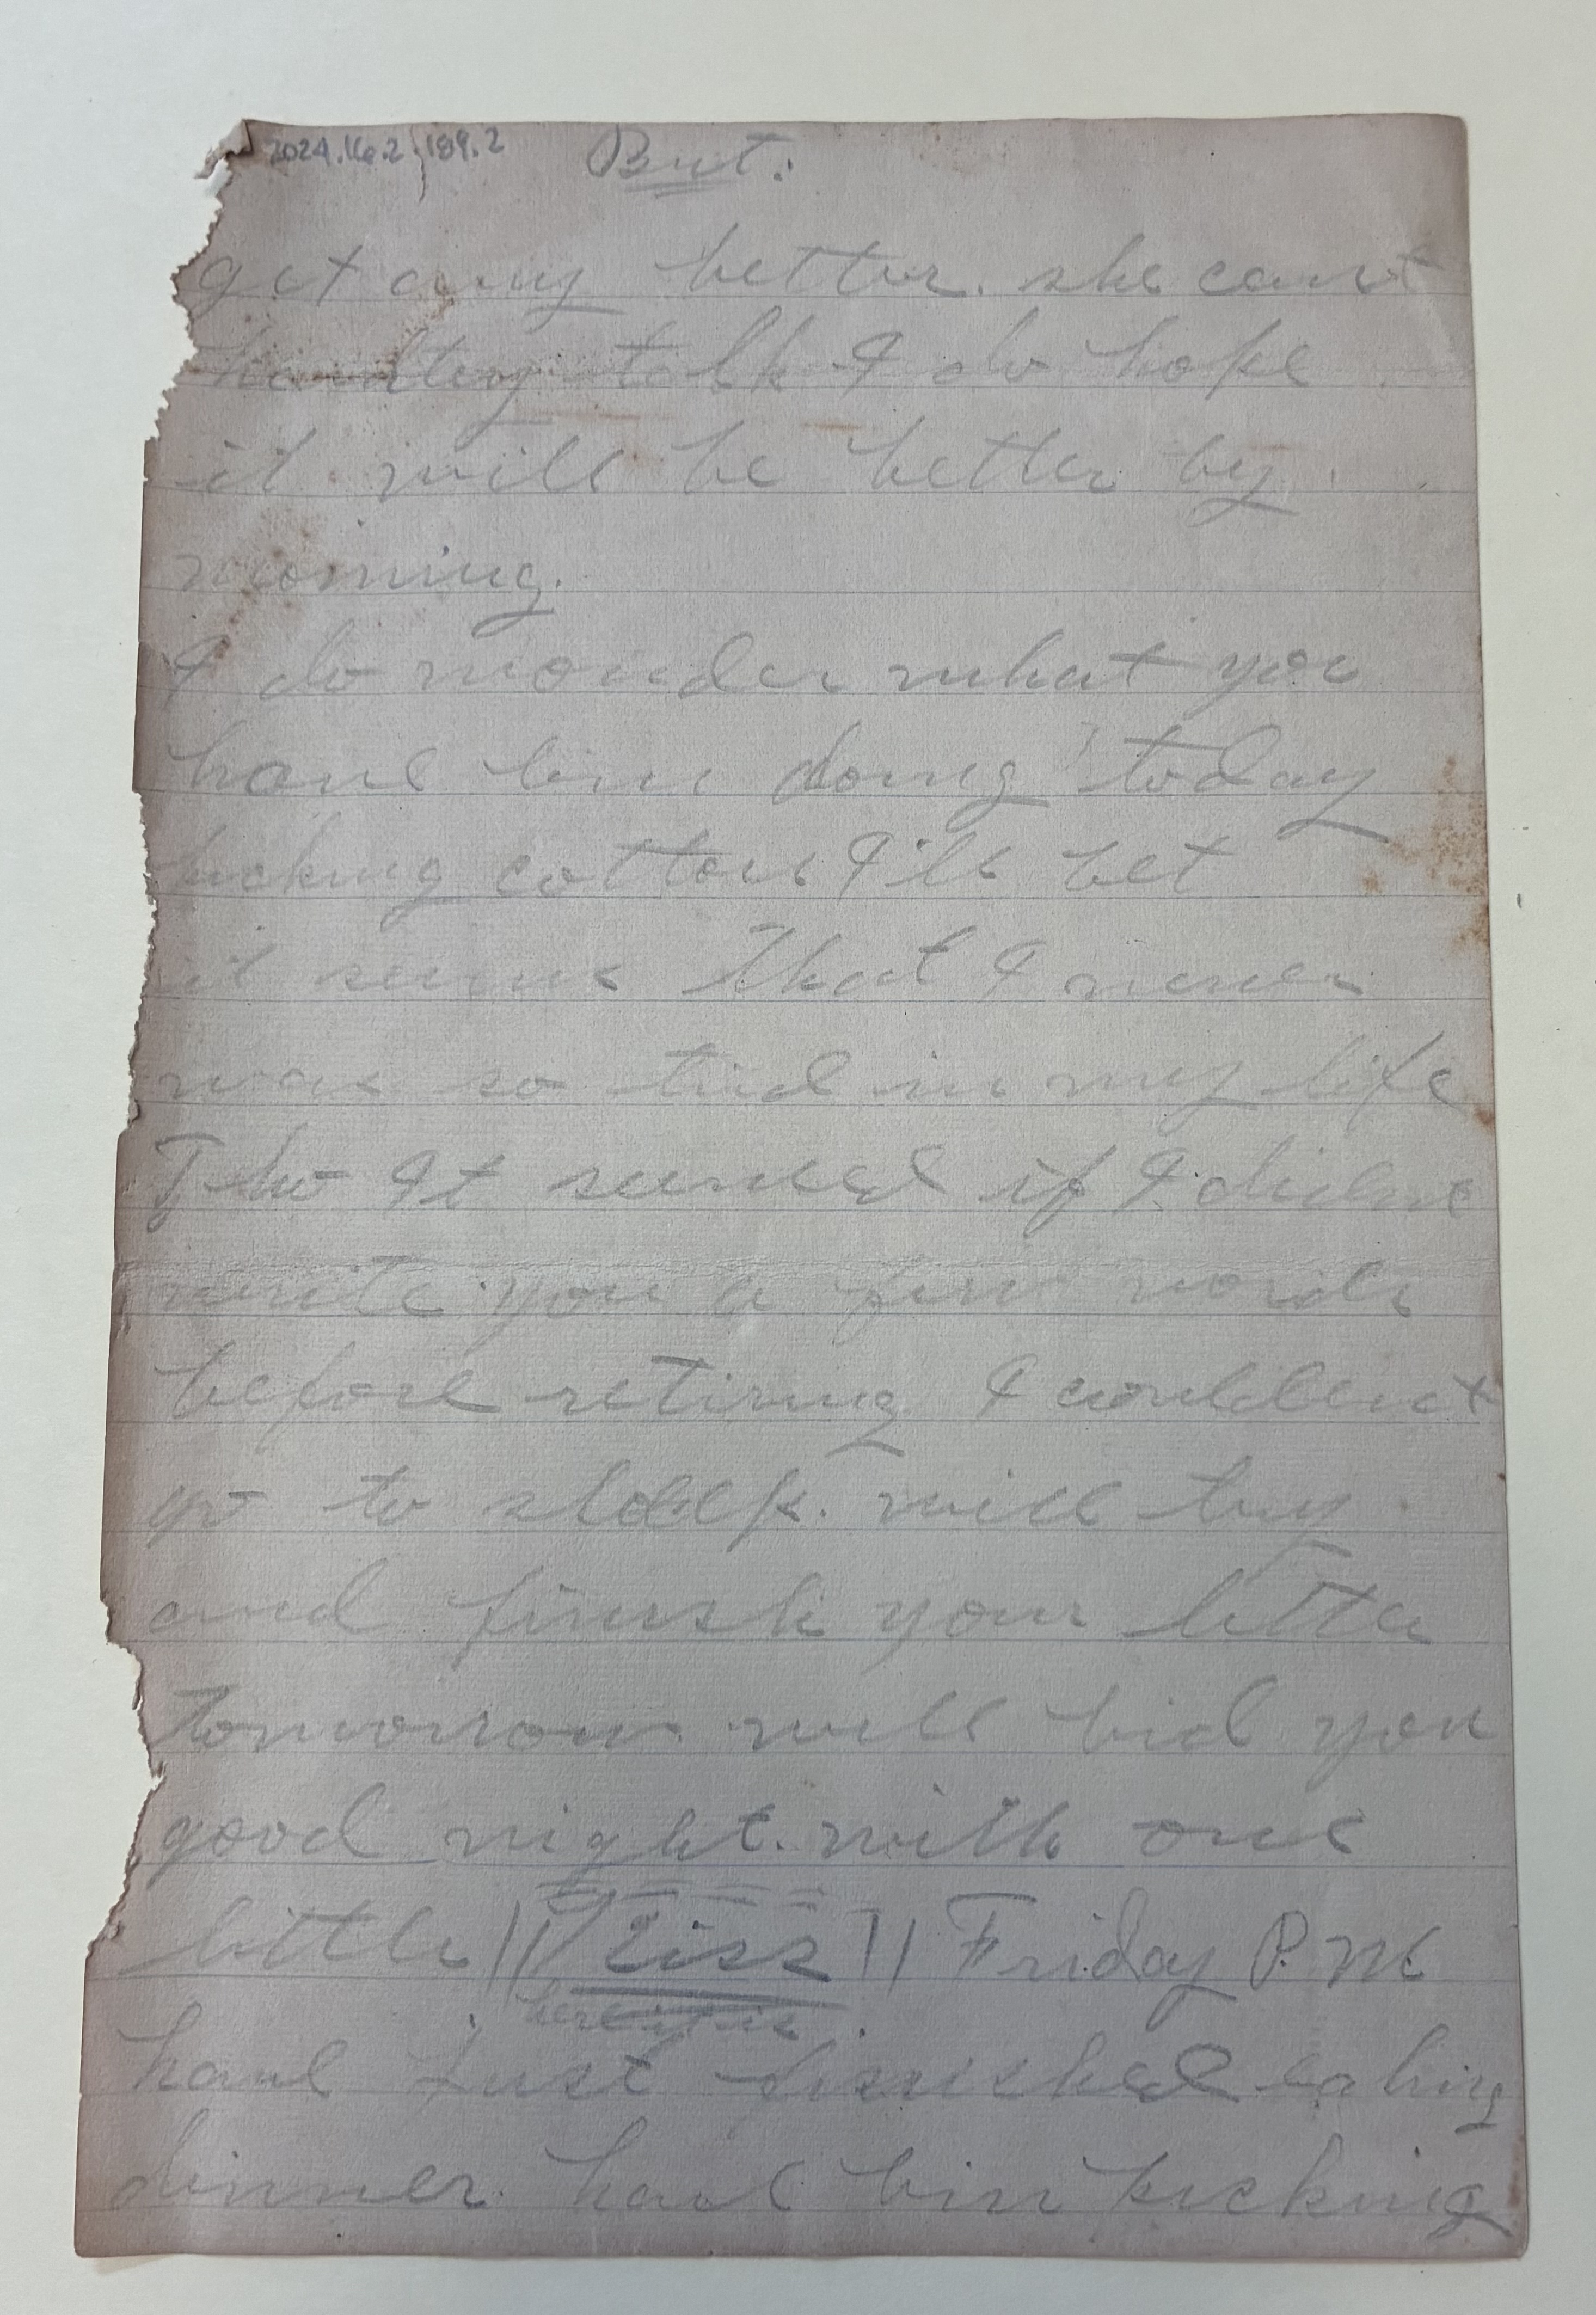 2024.16.2 189.2
But:
get any better. she cant
hardley talk I do hope
it will be better by
morning.
I do wonder what you
have bin doing today
picking cotton I'll bet
it seems that I never
was so tied in my life
Tho It seemed if I didnt
write you a few words
before retiring I couldent
go to sleep. will try
and finish your letter
tomorrow. will bid you
good night. with one
little || Kiss || Friday P. M
here it is
have just finished eating
dinner. have bin picking